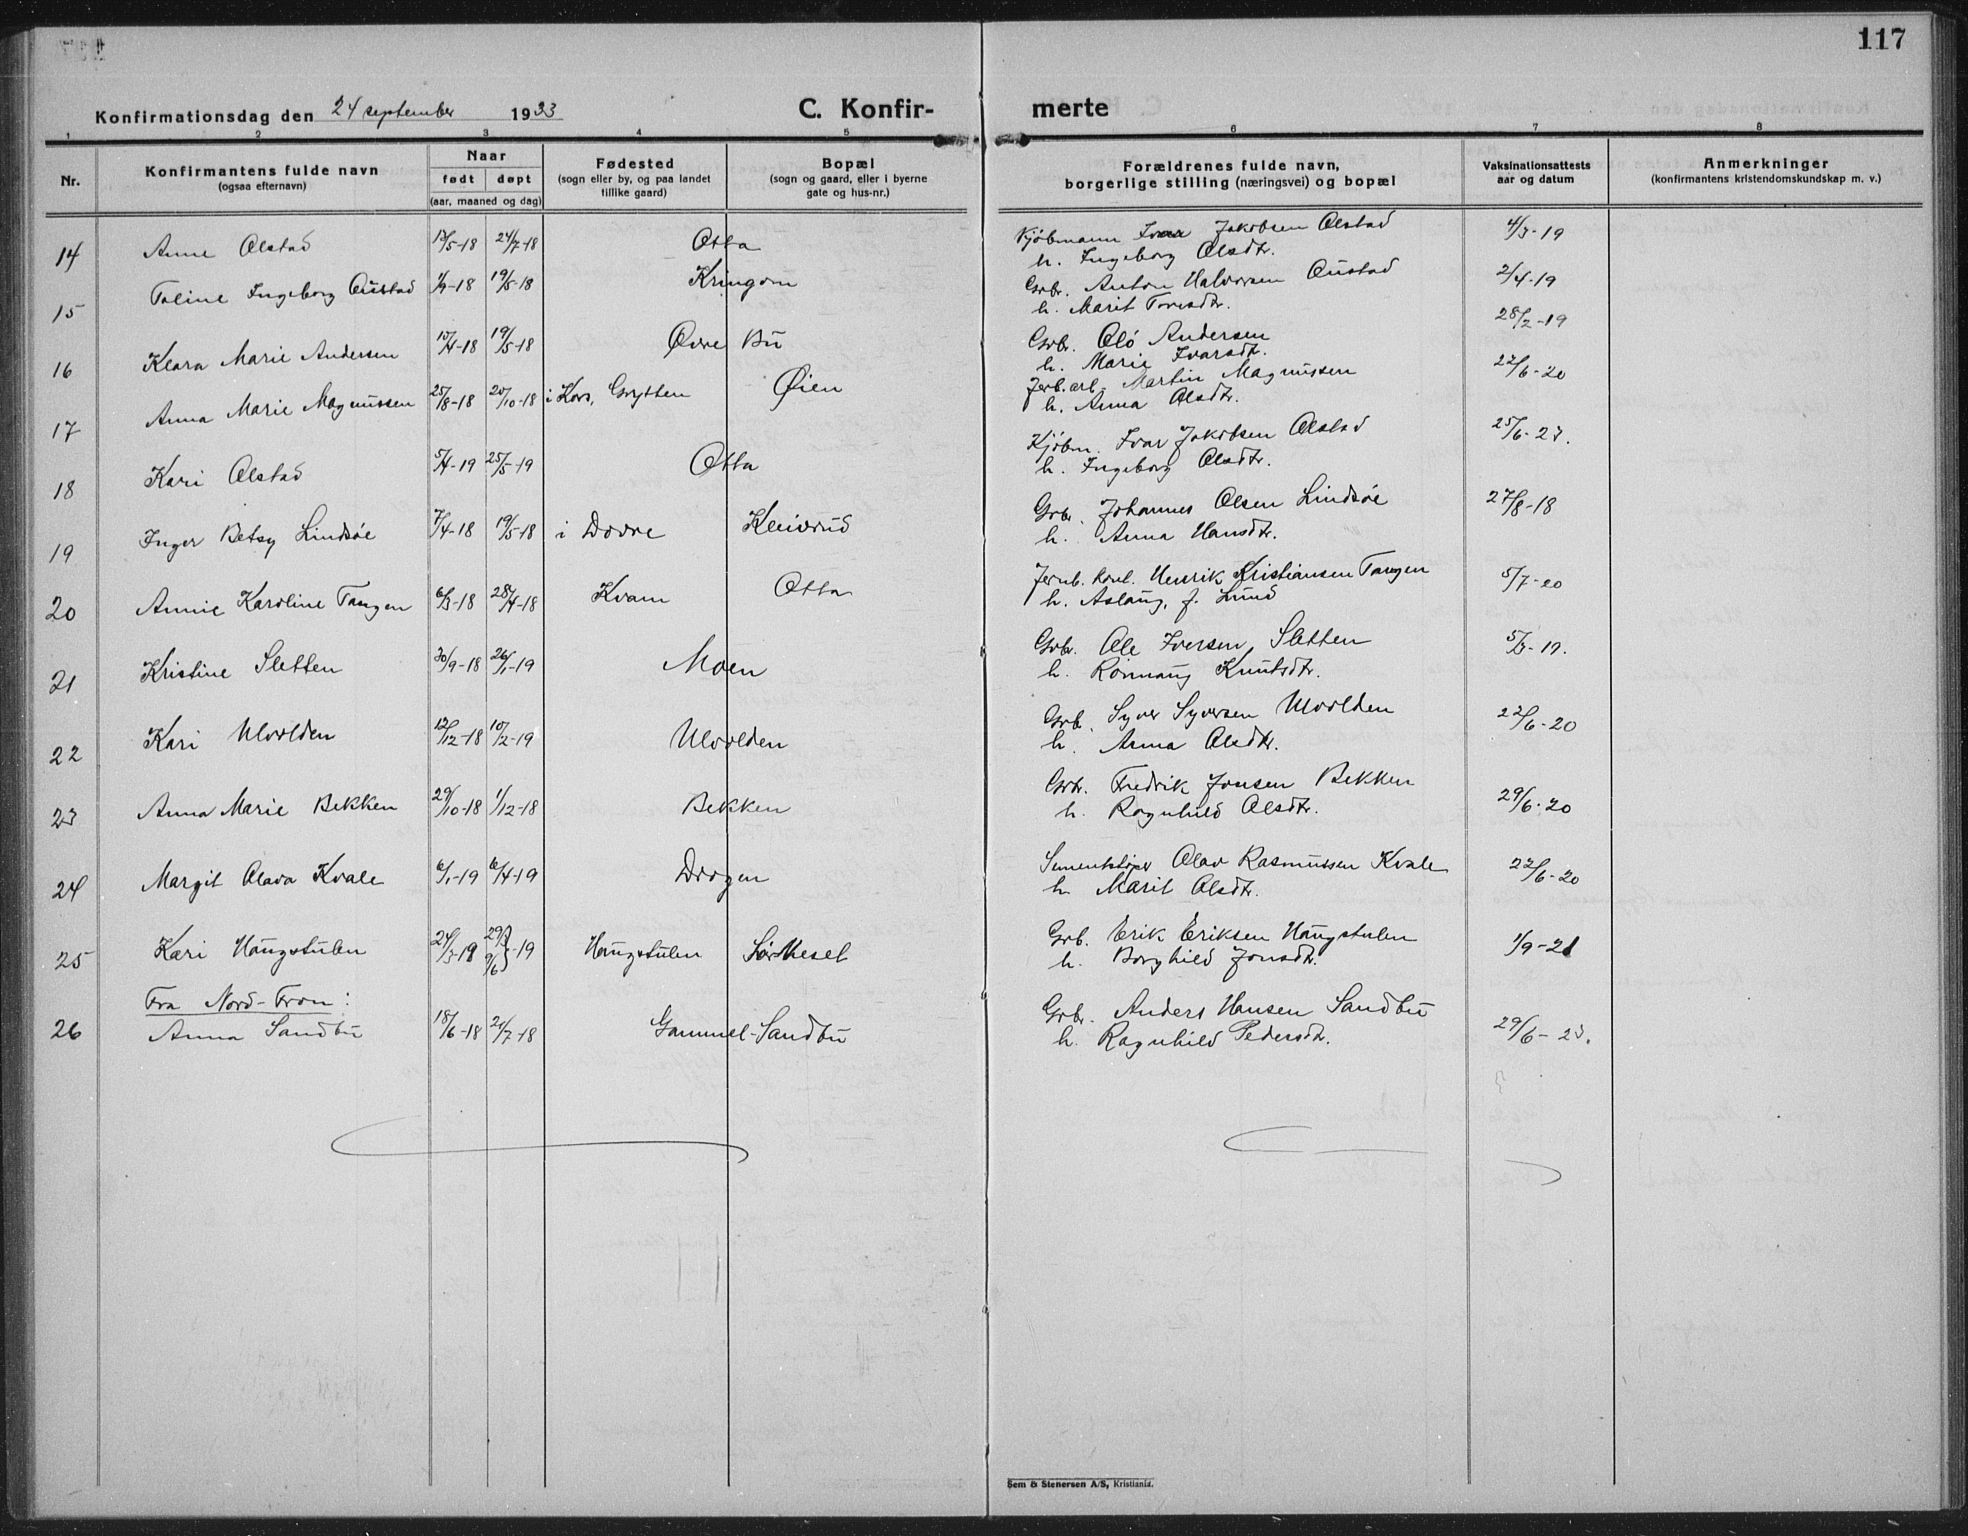 117
Konfirmationsdag den 24 september 1933 C. Konfir- merte
1 2 3 4 5 6 7 8
Nr. Konfirmantens fulde navn (ogsaa efternavn) Naar født døpt (aar, maaned og dag) Fødested (sogn eller by, og paa landet tillike gaard) Bopæl (sogn og gaard, eller i byerne gate og hus-nr.) Forældrenes fulde navn, borgerlige stilling (næringsvei) og bopæl Vaksinationsattests aar og datum Anmerkninger (konfirmantens kristendomskundskap m. v.)
14 Anne Olstad 13/5-18 24/7-18 Otta Kjöbmann Ivar Jakobsen Olstad 4/3-19
h. Ingeborg Olsdtr.
15 Toline Ingeborg Austad 1/3-18 19/5-18 Kringom Grbr. Anton Halvorsen Austad 2/4-19
h. Marit Toresdtr.
16 Klara Marie Andersen 15/4-18 19/5-18 Øvre Bu Grbr. Olö Andersen 28/2-19
h. Marie Ivarsdtr.
17 Anna Marie Magnussen 25/8-18 20/10-18 i Kors, Grytten Øien Jerb. arb. Martin Magnussen 22/6-20
h. Anna Olsdtr.
18 Kari Olstad 5/4-19 25/5-19 Otta Kjöbm. Ivar Jakobsen Olstad 25/6-23.
h. Ingeborg Olsdtr.
19 Inger Betsy Lindsöe 7/4-18 19/5-18 i Dovre Kleivrud Grbr. Johannes Olsen Lindsöe 27/8-18
h. Anna Hansdtr.
20 Annie Karoline Tangen 6/3-18 28/4-18 Kvam Otta Jernb. konl. Henrik Kristiansen Tangen 5/7-20
h. Aslaug, f. Lund
21 Kristine Sletten 30/9-18 26/1-19 Moen Grbr. Ole Iversen Sletten 5/3-19.
h. Rönnaug Knutsdtr.
22 Kari Ulvolden 12/12-18 10/2-19 Ulvolden Grb. Syver Syversen Ulvolden 22/6-20
h. Anna Olsdtr.
23 Anna Marie Bekken 29/10-18 1/12-18 Bekken Grbr. Fredrik Jonsen Bekken 29/6-20
h. Ragnhild Olsdtr.
24 Margit Olava Kvale 6/1-19 6/4-19 Drogen Sementstöper Olav Rasmussen Kvale 22/6-20
h. Marit Olsdtr.
25 Kari Haugstulen 24/3-19 29/3 9/6 }-19 Haugstulen Sör Hesel Grb. Erik Eriksen Haugstulen 1/9-21
h. Borghild Jonsdtr.
Fra Nord-Fron:
26 Anna Sandbu 18/6-18 21/7-18 Gammel-Sandbu Grbr. Anders Hansen Sandbu 29/6-23.
h. Ragnhild Pedersdtr.
Sem & Stenersen A/S, Kristiania.